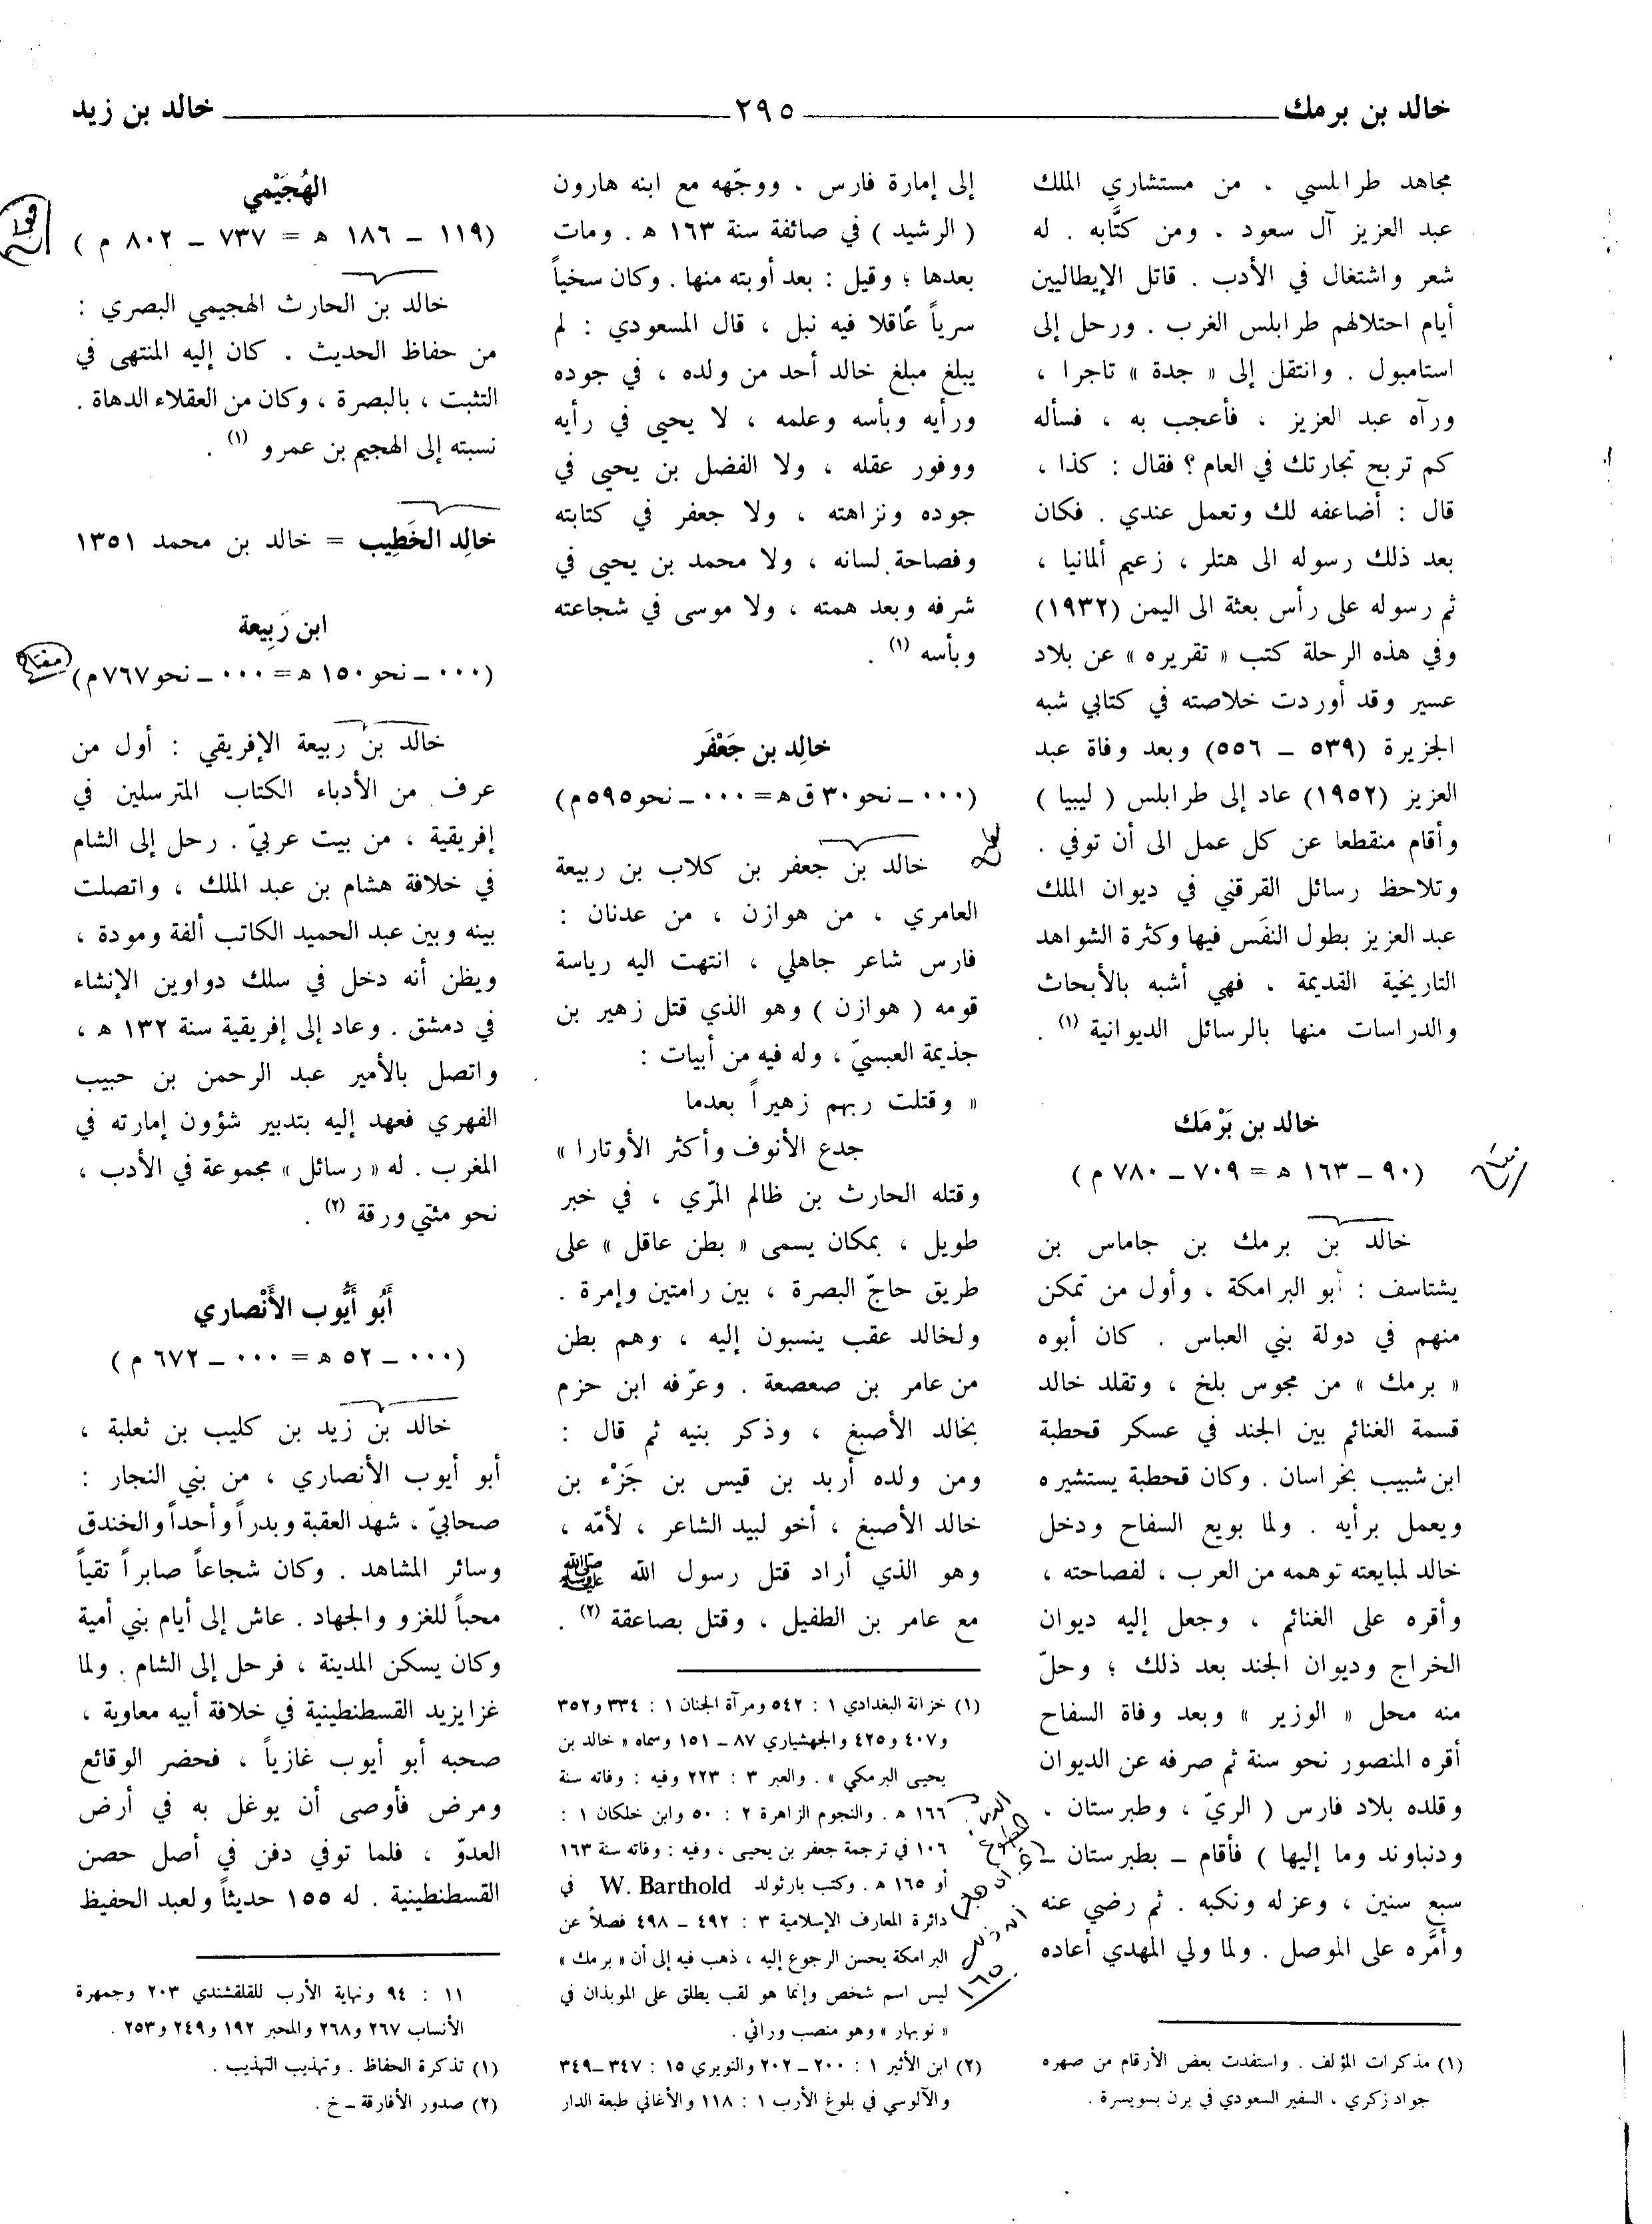 خالد بن برمك ٢٩٥ خالد بن زيد
مجاهد طرابلسي ، من مستشاري الملك
عبد العزيز آل سعود . ومن كتَّابه . له
شعر واشتغال في الأدب . قاتل الإيطاليين
أيام احتلالهم طرابلس الغرب . ورحل إلى
استامبول . وانتقل إلى « جدة » تاجرا ،
ورآه عبد العزيز ، فأعجب به ، فسأله
كم تربح تجارتك في العام ؟ فقال : كذا ،
قال : أضاعفه لك وتعمل عندي . فكان
بعد ذلك رسوله الى هتلر ، زعيم ألمانيا ،
ثم رسوله على رأس بعثة الى اليمن (١٩٣٢)
وفي هذه الرحلة كتب « تقريره » عن بلاد
عسير وقد أوردت خلاصته في كتابي شبه
الجزيرة (٥٣٩ ــ ٥٥٦) وبعد وفاة عبد
العزيز (١٩٥٢) عاد إلى طرابلس ( ليبيا )
وأقام منقطعا عن كل عمل الى أن توفي .
وتلاحظ رسائل القرقني في ديوان الملك
عبد العزيز بطول النفَس فيها وكثرة الشواهد
التاريخية القديمة ، فهي أشبه بالأبحاث
والدراسات منها بالرسائل الديوانية (١) .
خالد بن بَرْمَك
(٩٠ ــ ١٦٣ ه = ٧٠٩ ــ ٧٨٠ م )
خالد بن برمك بن جاماس بن
يشتاسف : أبو البرامكة ، وأول من تمكن
منهم في دولة بني العباس . كان أبوه
« برمك » من مجوس بلخ ، وتقلد خالد
قسمة الغنائم بين الجند في عسكر قحطبة
ابن شبيب بخراسان . وكان قحطبة يستشيره
ويعمل برأيه . ولما بويع السفاح ودخل
خالد لمبايعته توهمه من العرب ، لفصاحته ،
وأقره على الغنائم ، وجعل إليه ديوان
الخراج وديوان الجند بعد ذلك ؛ وحلّ
منه محل « الوزير » وبعد وفاة السفاح
أقره المنصور نحو سنة ثم صرفه عن الديوان
وقلده بلاد فارس ( الريّ ، وطبرستان ،
ودنباوند وما إليها ) فأقام ــ بطبرستان ــ
سبع سنين ، وعزله ونكبه . ثم رضي عنه
وأمَّره على الموصل . ولما ولي المهدي أعاده
(١) مذكرات المؤلف . واستفدت بعض الأرقام من صهره
جواد زكري ، السفير السعودي في برن بسويسرة .
إلى إمارة فارس ، ووجّهه مع ابنه هارون
( الرشيد ) في صائفة سنة ١٦٣ ه . ومات
بعدها ؛ وقيل : بعد أوبته منها . وكان سخياً
سرياً عاقلا فيه نبل ، قال المسعودي : لم
يبلغ مبلغ خالد أحد من ولده ، في جوده
ورأيه وبأسه وعلمه ، لا يحيى في رأيه
ووفور عقله ، ولا الفضل بن يحيى في
جوده ونزاهته ، ولا جعفر في كتابته
وفصاحة لسانه ، ولا محمد بن يحيى في
شرفه وبعد همته ، ولا موسى في شجاعته
وبأسه (١) .
خالِد بن جَعْفَر
(٠٠٠ ــ نحو ٣٠ ق ه = ٠٠٠ ــ نحو ٥٩٥ م)
خالد بن جعفر بن كلاب بن ربيعة
العامري ، من هوازن ، من عدنان :
فارس شاعر جاهلي ، انتهت اليه رياسة
قومه ( هوازن ) وهو الذي قتل زهير بن
جذيمة العبسيّ ، وله فيه من أبيات :
« وقتلت ربهم زهيراً بعدما
جدع الأنوف وأكثر الأوتارا »
وقتله الحارث بن ظالم المرّي ، في خبر
طويل ، بمكان يسمى « بطن عاقل » على
طريق حاجّ البصرة ، بين رامتين وإمرة .
ولخالد عقب ينسبون إليه ، وهم بطن
من عامر بن صعصعة . وعرّفه ابن حزم
بخالد الأصبغ ، وذكر بنيه ثم قال :
ومن ولده أربد بن قيس بن جَزْء بن
خالد الأصبغ ، أخو لبيد الشاعر ، لأمّه ،
وهو الذي أراد قتل رسول الله ﷺ
مع عامر بن الطفيل ، وقتل بصاعقة (٢) .
(١) خزانة البغدادي ١ : ٥٤٢ ومرآة الجنان ١ : ٣٣٤ و٣٥٢
و٤٠٧ و٤٢٥ والجهشياري ٨٧ ــ ١٥١ وسماه « خالد بن
يحيى البرمكي » . والعبر ٣ : ٢٢٣ وفيه : وفاته سنة
١٦٦ ه . والنجوم الزاهرة ٢ : ٥٠ وابن خلكان ١ :
١٠٦ في ترجمة جعفر بن يحيى ، وفيه : وفاته سنة ١٦٣
أو ١٦٥ ه . وكتب بارثولد W. Barthold في
دائرة المعارف الإسلامية ٣ : ٤٩٢ ــ ٤٩٨ فصلاً عن
البرامكة يحسن الرجوع إليه ، ذهب فيه إلى أن « برمك »
ليس اسم شخص وإنما هو لقب يطلق على الموبذان في
« نوبهار » وهو منصب وراثي .
(٢) ابن الأثير ١ : ٢٠٠ ــ ٢٠٢ والنويري ١٥ : ٣٤٧ ــ ٣٤٩
والآلوسي في بلوغ الأرب ١ : ١١٨ والأغاني طبعة الدار
الهُجَيْمي
(١١٩ ــ ١٨٦ ه = ٧٣٧ ــ ٨٠٢ م )
خالد بن الحارث الهجيمي البصري :
من حفاظ الحديث . كان إليه المنتهى في
التثبت ، بالبصرة ، وكان من العقلاء الدهاة .
نسبته إلى الهجيم بن عمرو (١) .
خالِد الخَطِيب = خالد بن محمد ١٣٥١
ابن رَبِيعة
(٠٠٠ ــ نحو ١٥٠ ه = ٠٠٠ ــ نحو ٧٦٧ م)
خالد بن ربيعة الإفريقي : أول من
عرف من الأدباء الكتاب المترسلين في
إفريقية ، من بيت عربيّ . رحل إلى الشام
في خلافة هشام بن عبد الملك ، واتصلت
بينه وبين عبد الحميد الكاتب ألفة ومودة ،
ويظن أنه دخل في سلك دواوين الإنشاء
في دمشق . وعاد إلى إفريقية سنة ١٣٢ ه ،
واتصل بالأمير عبد الرحمن بن حبيب
الفهري فعهد إليه بتدبير شؤون إمارته في
المغرب . له « رسائل » مجموعة في الأدب ،
نحو مئتي ورقة (٢) .
أَبُو أَيُّوب الأَنْصاري
(٠٠٠ ــ ٥٢ ه = ٠٠٠ ــ ٦٧٢ م )
خالد بن زيد بن كليب بن ثعلبة ،
أبو أيوب الأنصاري ، من بني النجار :
صحابيّ ، شهد العقبة وبدراً وأحداً والخندق
وسائر المشاهد . وكان شجاعاً صابراً تقياً
محباً للغزو والجهاد . عاش إلى أيام بني أمية
وكان يسكن المدينة ، فرحل إلى الشام . ولما
غزا يزيد القسطنطينية في خلافة أبيه معاوية ،
صحبه أبو أيوب غازياً ، فحضر الوقائع
ومرض فأوصى أن يوغل به في أرض
العدوّ ، فلما توفي دفن في أصل حصن
القسطنطينية . له ١٥٥ حديثاً ولعبد الحفيظ
١١ : ٩٤ ونهاية الأرب للقلقشندي ٢٠٣ وجمهرة
الأنساب ٢٦٧ و٢٦٨ والمحبر ١٩٢ و٢٤٩ و٢٥٣ .
(١) تذكرة الحفاظ . وتهذيب التهذيب .
(٢) صدور الأفارقة ــ خ .